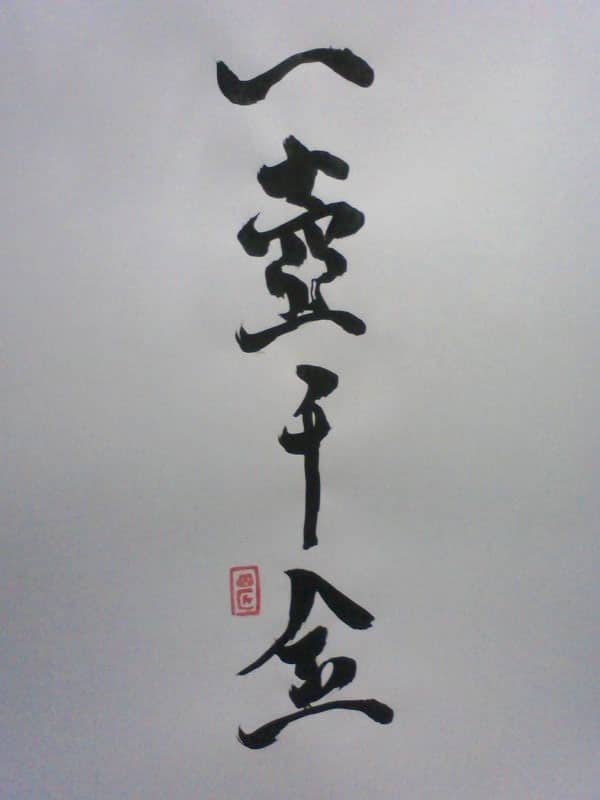 一壺千金